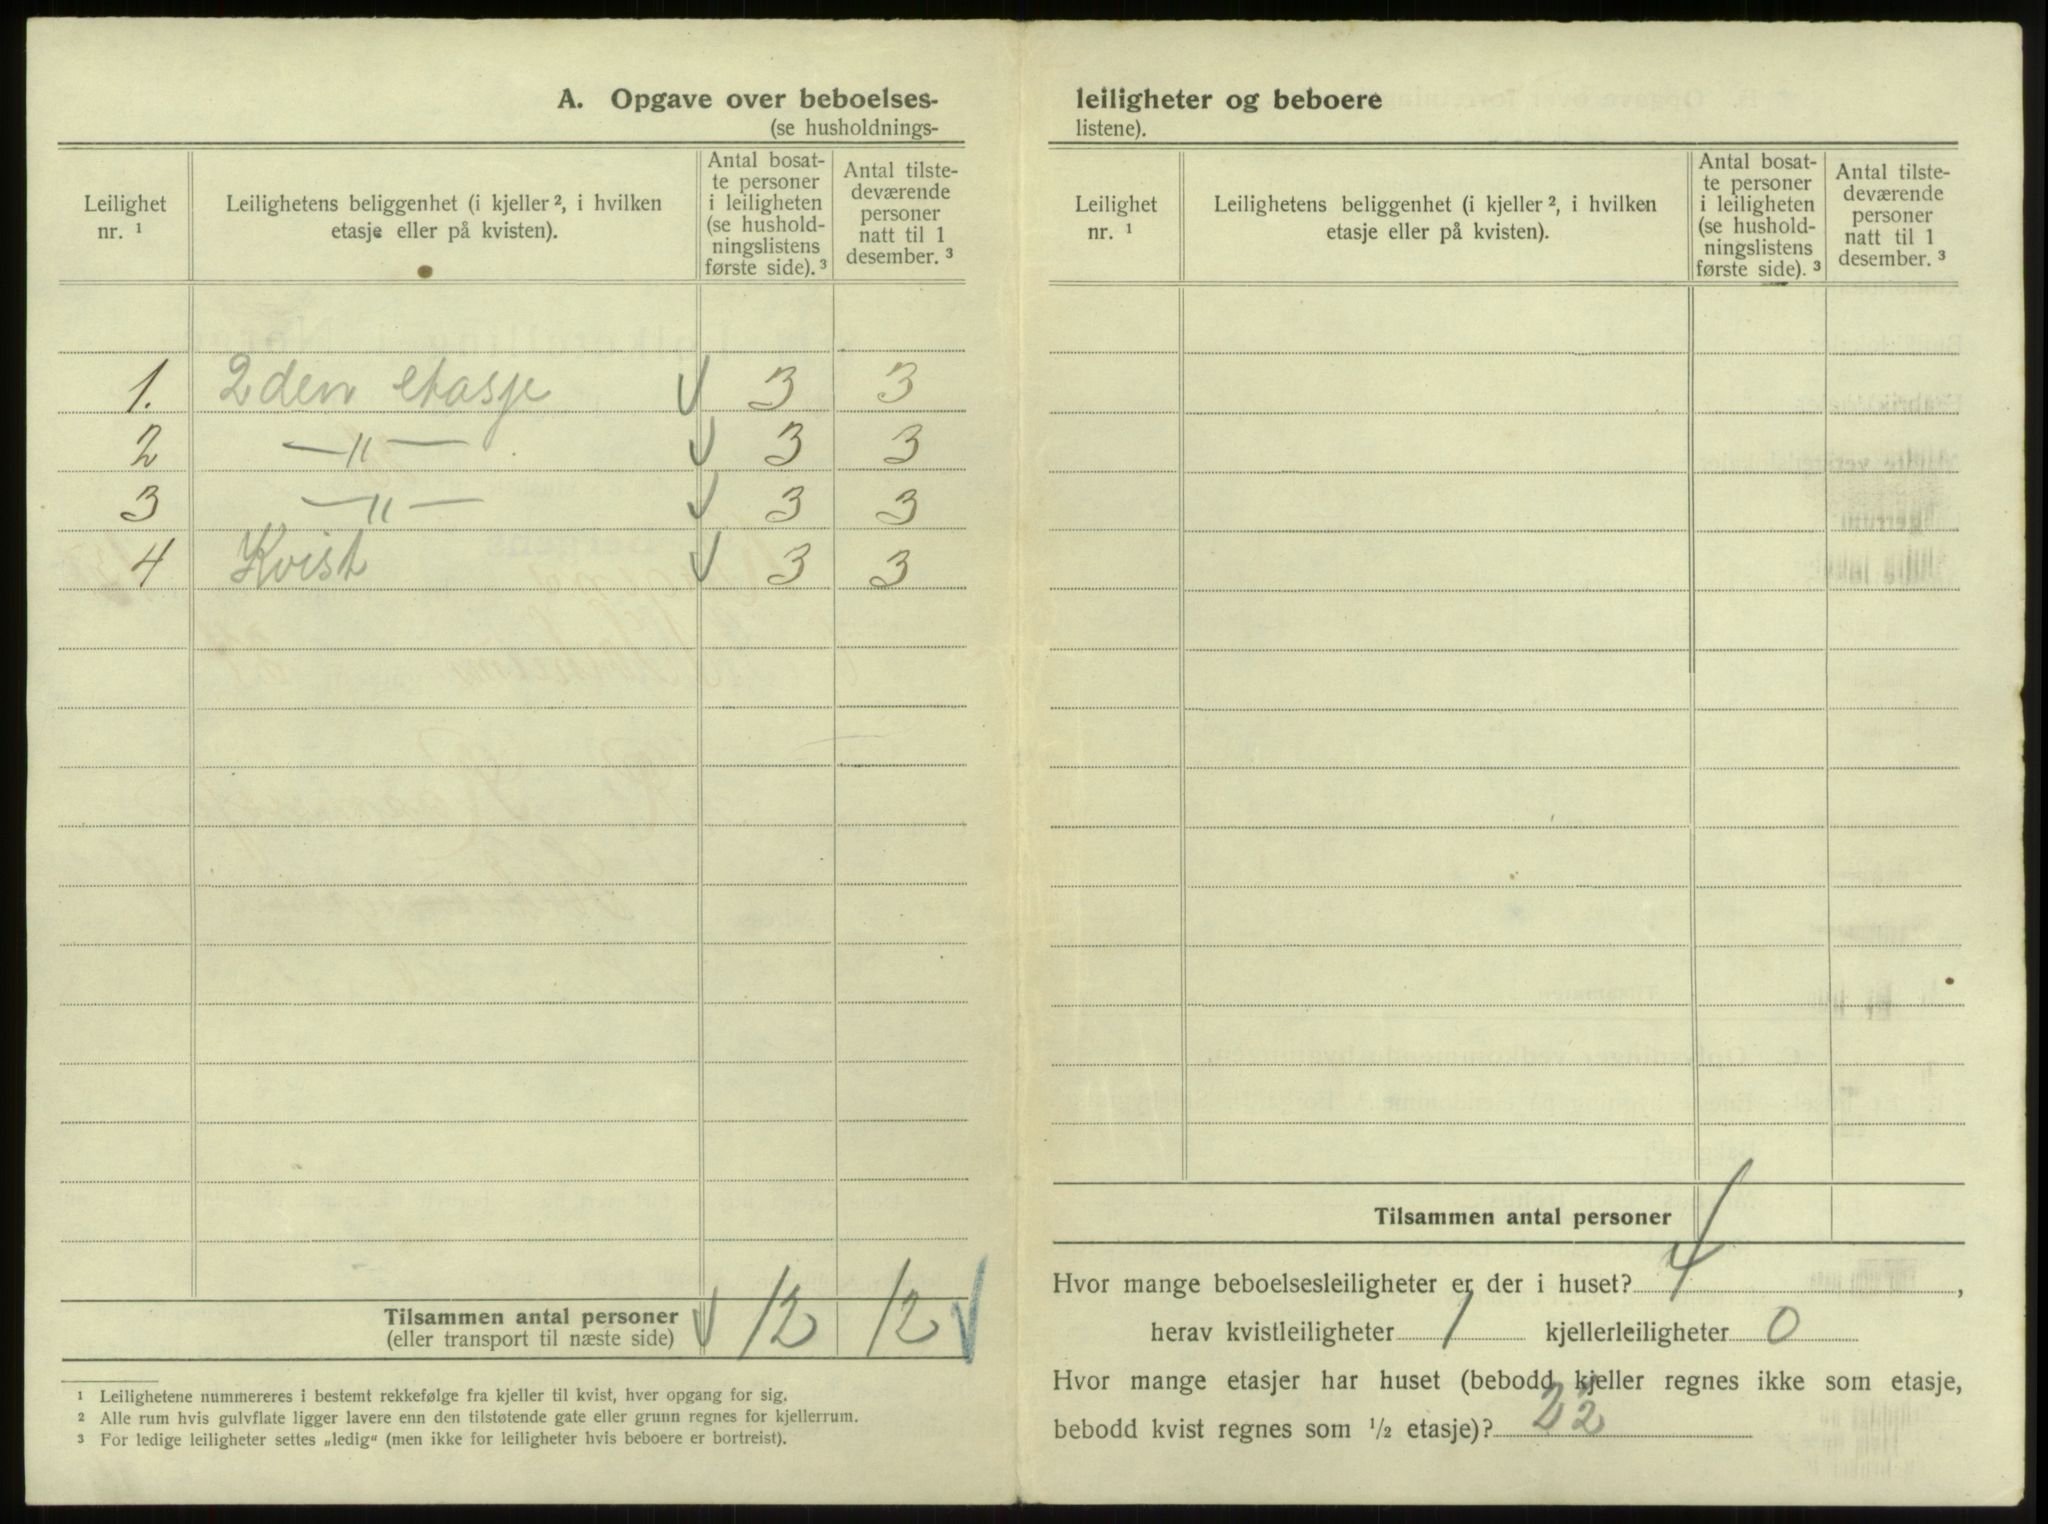 A. Opgave over beboelses-
(se husholdnings-
Leilighet
nr. ¹
Leilighetens beliggenhet (i kjeller ², i hvilken
etasje eller på kvisten).
Antal bosat-
te personer
i leiligheten
(se hushold-
ningslistens
første side). ³
Antal tilste-
deværende
personer
natt til 1
desember. ³
1. 2den etasje 3 3
2 —"— 3 3
3 —"— 3 3
4 Kvist 3 3
Tilsammen antal personer 12 12
(eller transport til næste side)
¹ Leilighetene nummereres i bestemt rekkefølge fra kjeller til kvist, hver opgang for sig.
² Alle rum hvis gulvflate ligger lavere enn den tilstøtende gate eller grunn regnes for kjellerrum.
³ For ledige leiligheter settes „ledig“ (men ikke for leiligheter hvis beboere er bortreist).
leiligheter og beboere
listene).
Leilighet
nr. ¹
Leilighetens beliggenhet (i kjeller ², i hvilken
etasje eller på kvisten).
Antal bosat-
te personer
i leiligheten
(se hushold-
ningslistens
første side). ³
Antal tilste-
deværende
personer
natt til 1
desember. ³
Tilsammen antal personer
Hvor mange beboelsesleiligheter er der i huset? 4,
herav kvistleiligheter 1 kjellerleiligheter 0
Hvor mange etasjer har huset (bebodd kjeller regnes ikke som etasje,
bebodd kvist regnes som ½ etasje)?